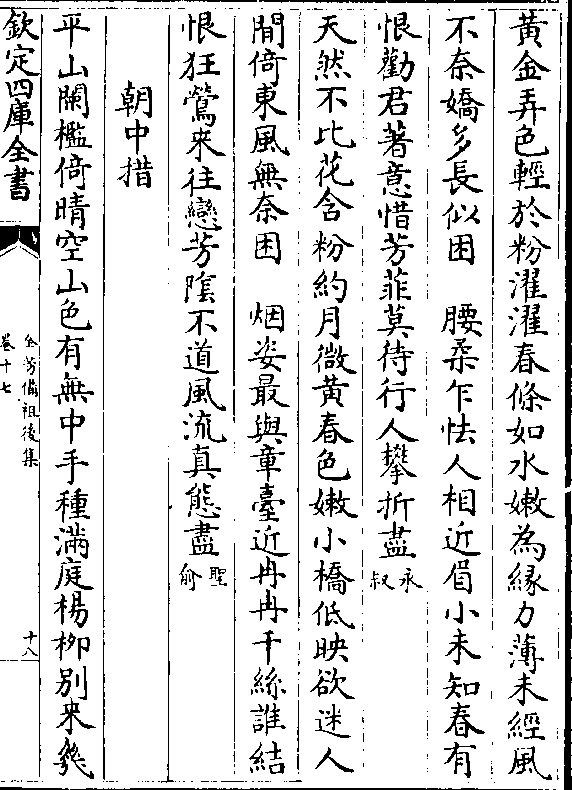 黃金弄色輕於粉濯濯春條如水嫩為緣力薄未經風
不奈嬌多長似困　腰柔乍怯人相近眉小未知春有
恨勸君著意惜芳菲莫待行人攀折盡永叔
天然不比花含粉約月微黃春色嫩小橋低映欲迷人
閒倚東風無奈困　烟姿最與章臺近冉冉千絲誰結
恨狂鶯來往戀芳陰不道風流真態盡聖俞
朝中措
平山闌檻倚晴空山色有無中手種滿庭楊柳別來幾
欽定四庫全書
全芳備祖後集
卷十七
十八